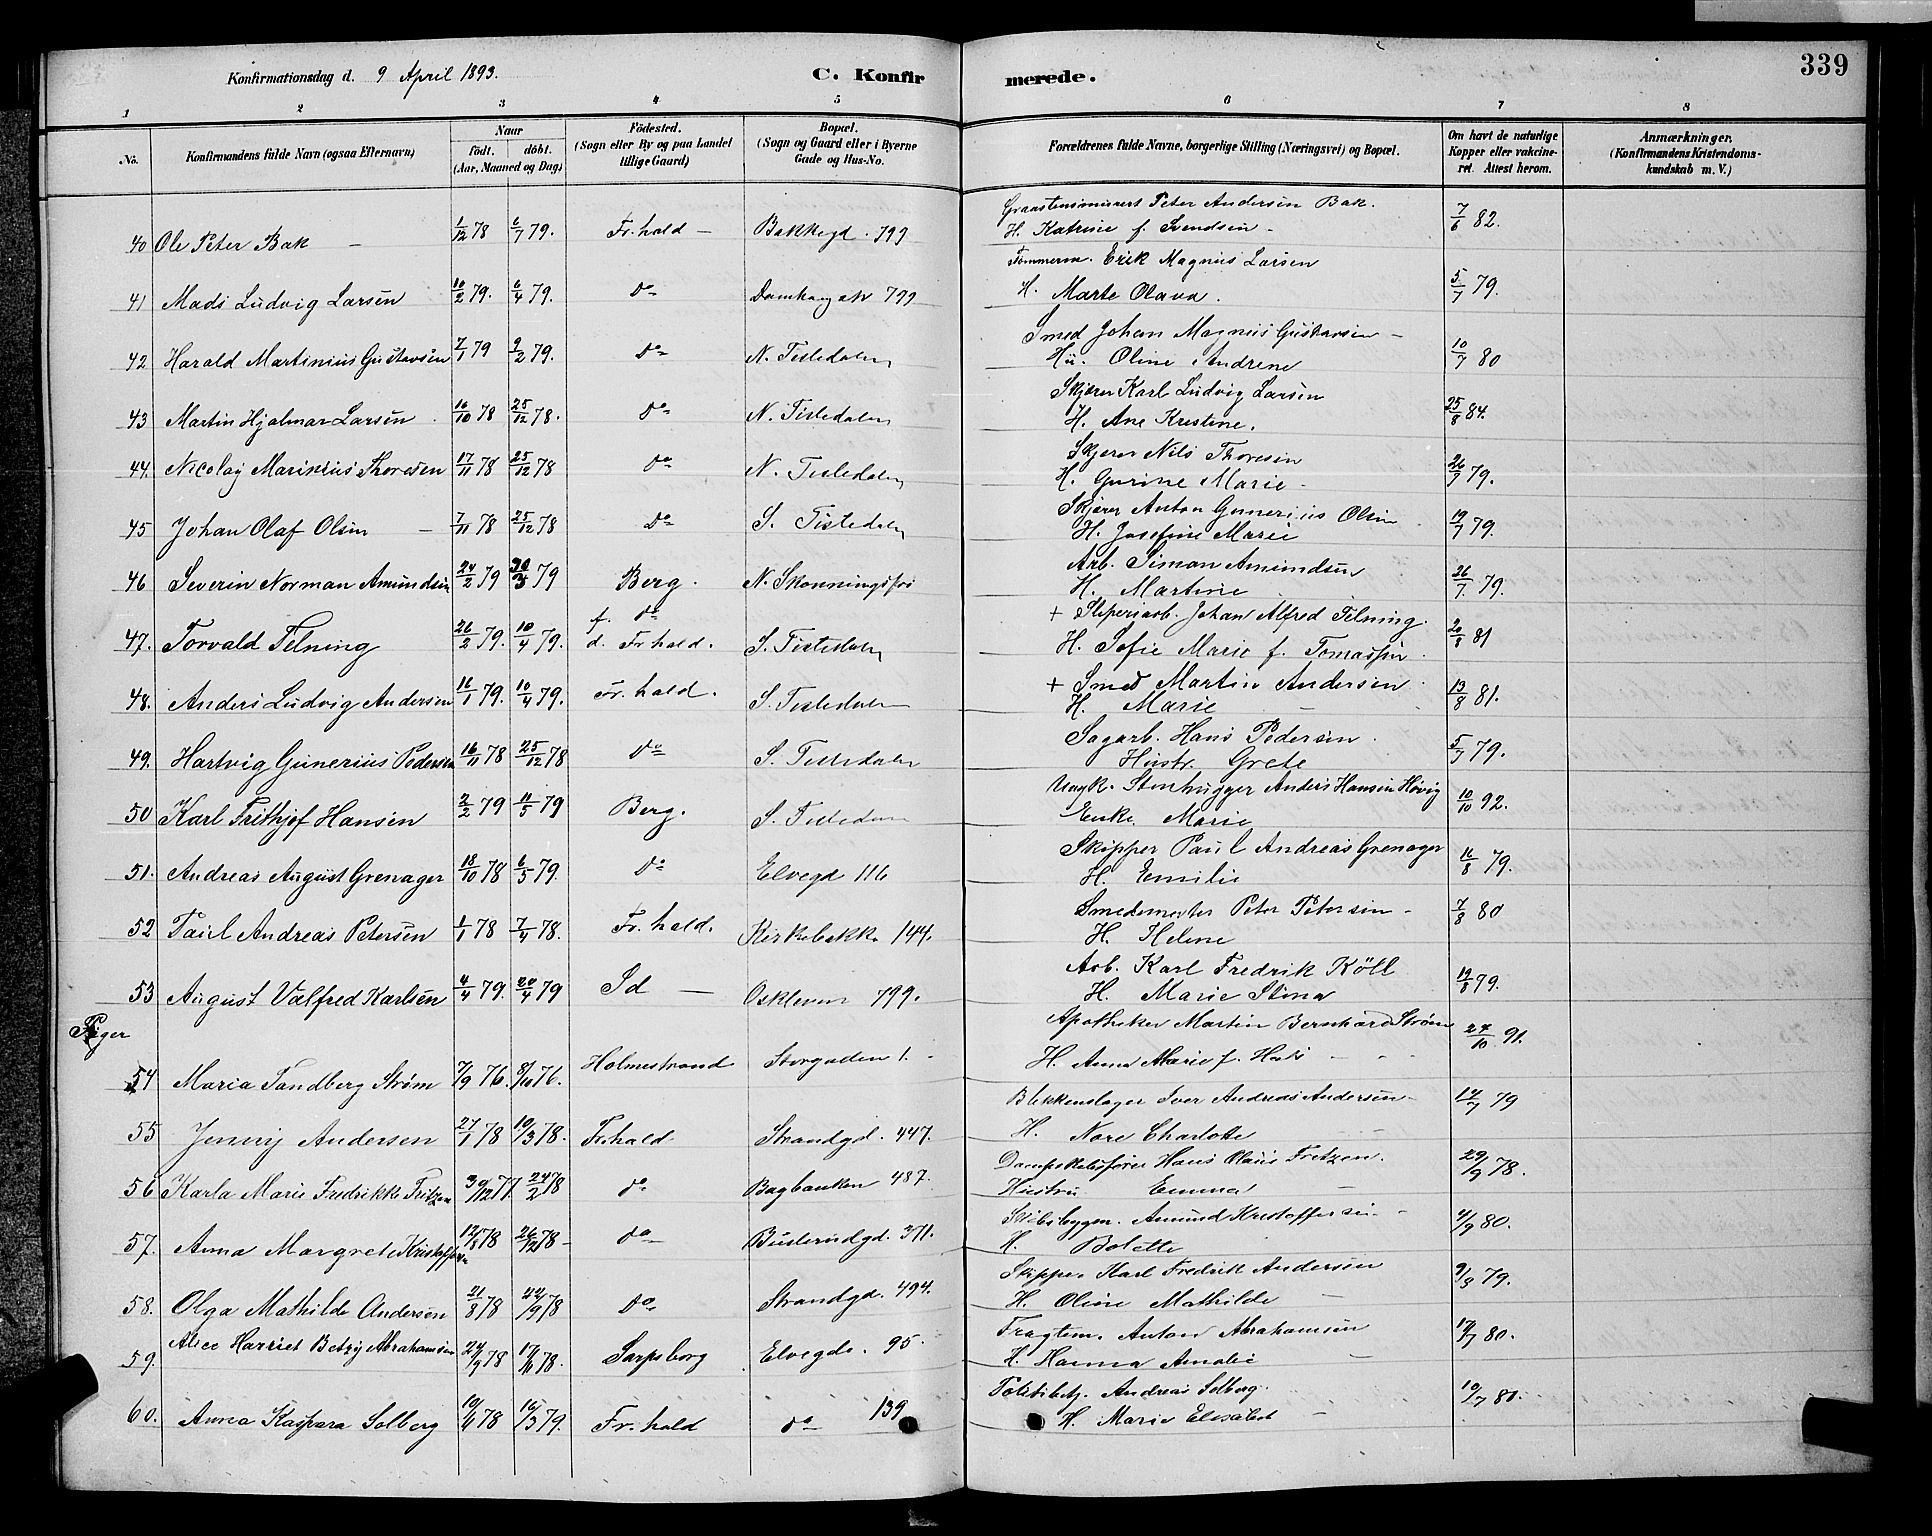 339
Konfirmationsdag d. 9 April 1893. C. Konfir merede.
1 2 3 4 5 6 7 8
No. Konfirmandens fulde Navn (ogsaa Efternavn) Naar födt. döbt. (Aar, Maaned og Dag) Födested. (Sogn eller By og paa Landet tillige Gaard) Bopæl. (Sogn og Gaard eller i Byerne Gade og Hus-No. Forældrenes fulde Navne, borgerlige Stilling (Næringsvei) og Bopæl. Om havt de naturlige Kopper eller vakcineret. Attest herom. Anmærkninger. (Konfirmandens Kristendomskundskab m. V.)
40 Ole Peter Bak 1/12 78 6/7 79. Fr.hald Bakkegd. 799 Peter Andersen Bak. H. Katrine f. Svendsen 7/6 82.
41 Mads Ludvig Larsen 10/2 79. 6/4 79. do 799 Tommerm. Erik Magnus Larsen H. Marte Olava. 5/7 79.
42 Harald Martinius Gustavsen 7/1 79 9/2 79. do N. Tistedalen Smed Johan Magnus Gustavsen Hu. Oline Andrene 10/7 80
43 Martin Hjalmar Larsen 16/10 78 25/12 78. do N. Tistedalen Skjærer Karl Ludvig Larsen H. Ane Kristine. 25/8 84.
44. Nicolay Marinius Thoresen 17/11 78 25/12 78 do N. Tistedalen Skjærer Nils Thoresen H. Gurine Marie 26/7 79.
45 Johan Olaf Olsen 7/11 78 25/12 78 do S. Tistedalen Skjærer Anton Gunerius Olsen H. Josefine Marie 19/7 79.
46 Severin Norman Amundsen 24/2 79 79 Berg. N. Skonningsfos Arb. Simon Amundsen H. Martine 26/7 79.
47. Torvald Telning 26/2 79. 10/4 79. f. do d. Fr.hald. S. Tistedalen + Sliperiarb. Johan Alfred Telning. H. Sofie Marie f. Tomassen 20/8 81
48. Anders Ludvig Andersen 16/1 79. 10/4 79. Fr.hald. S. Tistedalen + Smed Martin Andersen H. Marie 13/8 81.
49. Hartvig Gunerius Pedersen 16/11 78 25/12 78 do S. Tistedalen Sagarb. Hans Pedersen. Hustr. Grete 5/7 79.
50 Karl Frithjof Hansen 2/2 79 11/5 79 Berg. S. Tistedalen Ungk. Stenhugger Anders Hansen Høvig Enke Marie 10/10 92.
51. Andreas August Grenager 18/10 78 6/5 79. do Elvegd 116 Skipper Paul Andreas Grenager H. Emilie 11/8 79.
52 Paul Andreas Petersen 1/1 78 7/4 78. Fr.hald. Kirkebakke 144. Smedemester Peter Petersen H. Helene 7/8 80
53 August Valfred Karlsen 4/4 79. 20/4 79 Id Oskleven 799. Arb. Karl Fredrik Köll H. Marie Stina 19/8 79.
Piger
54 Maria Tandberg Strøm 7/9 76. 8/10 76. Holmestrand Storgaden 1. Apotheker Martin Bernhard Strøm H. Anna Marie f. 27/10 91.
55 Jenny Andersen 27/1 78 10/3 78. Fr.hald Strandgd. 447. Blikkenslager Iver Andreas Andersen H. Nore Charlotte 17/7 79
56 Karla Marie Fredrikke Fritzen 30/12 77. 24/2 78 do Bagbanken 487. Dampskibsfører Hans Olaus Fretzen. Hustru Emma 29/9 78.
57. Anna Margrete Kristoffersen 78 78 do Busterudgd. 371. Skibsbyggm. Amund Kristoffersen H. Bolette 4/9 80.
58. Olga Mathilde Andersen 21/8 78 22/9 78 do Strandgd. 494. Skipper Karl Fredrik Andersen H. Oline Mathilde 9/8 79.
59. Alice Harriet Betsy Abrahamsen 24/9 78 78. Sarpsborg Elvegd. 95. Fragtem. Anton Abrahamsen H. Hanna Amalie 17/7 80.
60. Anna Kaspara Solberg 78 16/3 79. Fr.hald do 139 Politibetj. Andreas Solberg. H. Marie Elisabet 10/7 80.